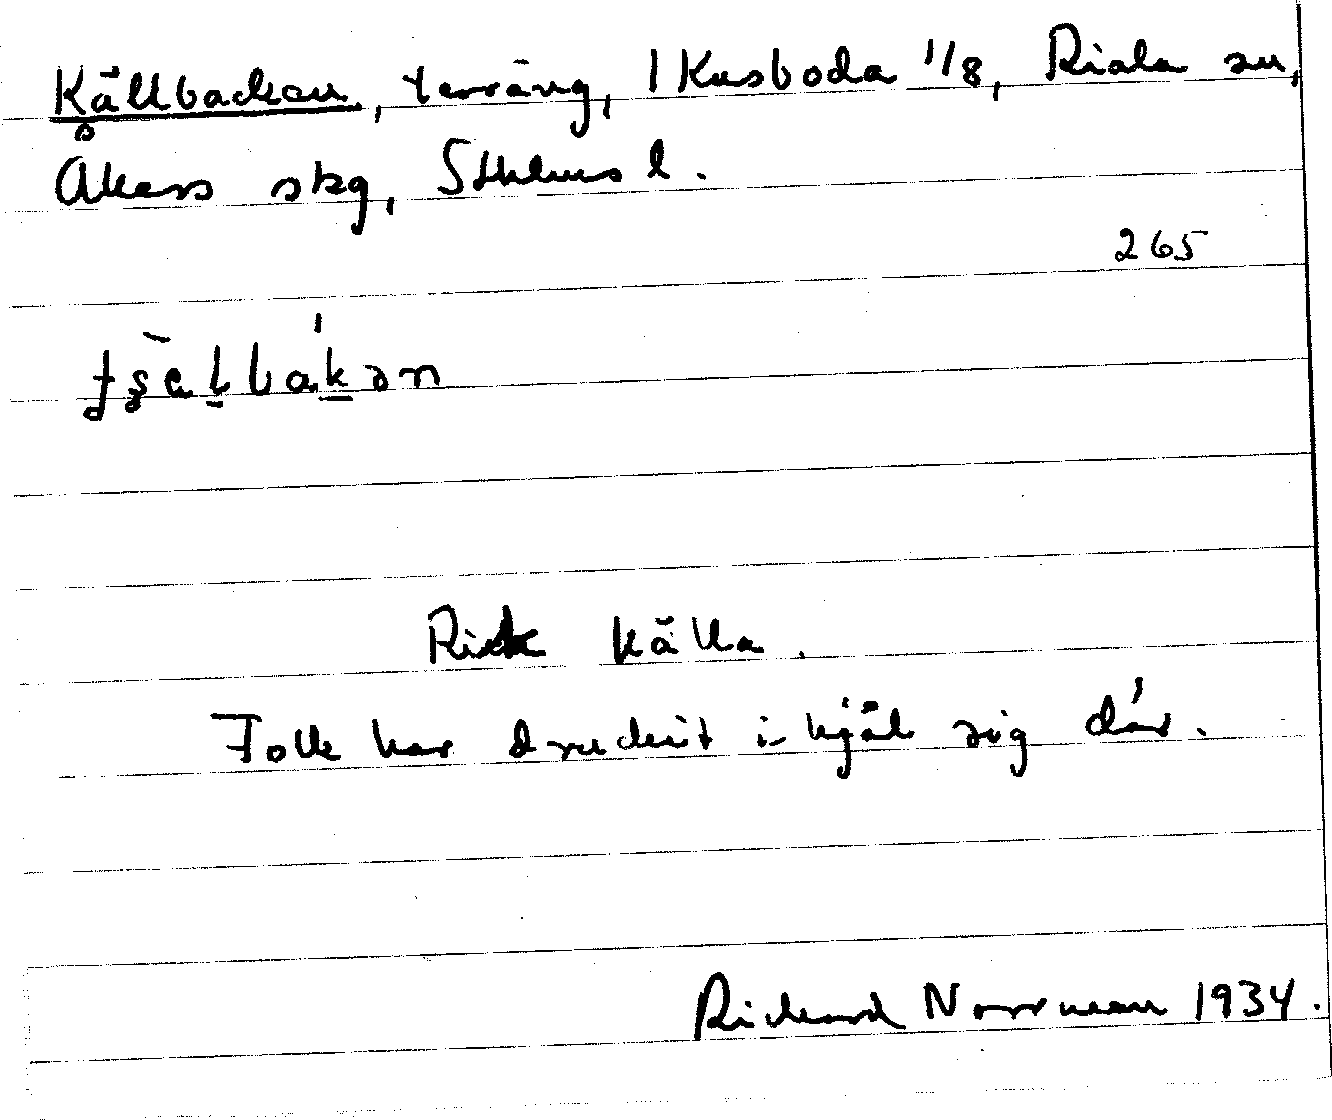 Källbacken, terräng, 1 Kusboda 1/8, Riala sn,
Åkers skg, Sthlms l.
265
Rik källa.
Folk har druckit ihjäl sig där.
Richard Norrman 1934.